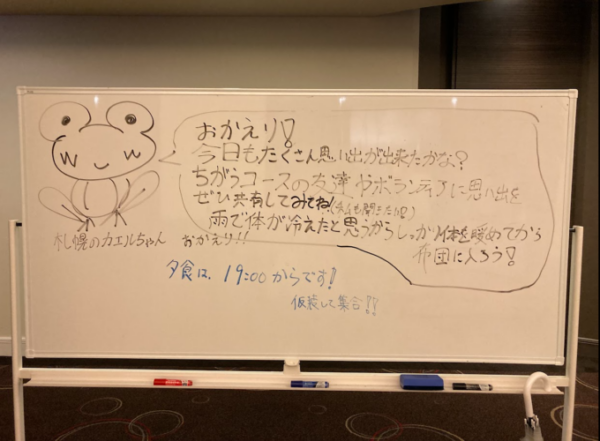 おかえり!
今日もたくさん思い出が出来たかな?
ちがうコースの友達やボランティアに思い出を
ぜひ共有してみてね!
も聞きたい
雨で体が冷えたと思うからしっかり体を暖めてから
布団に入ろう!
札幌のカエルちゃん
おかえり!!
夕食は、19:00からです!
仮装して集合!!